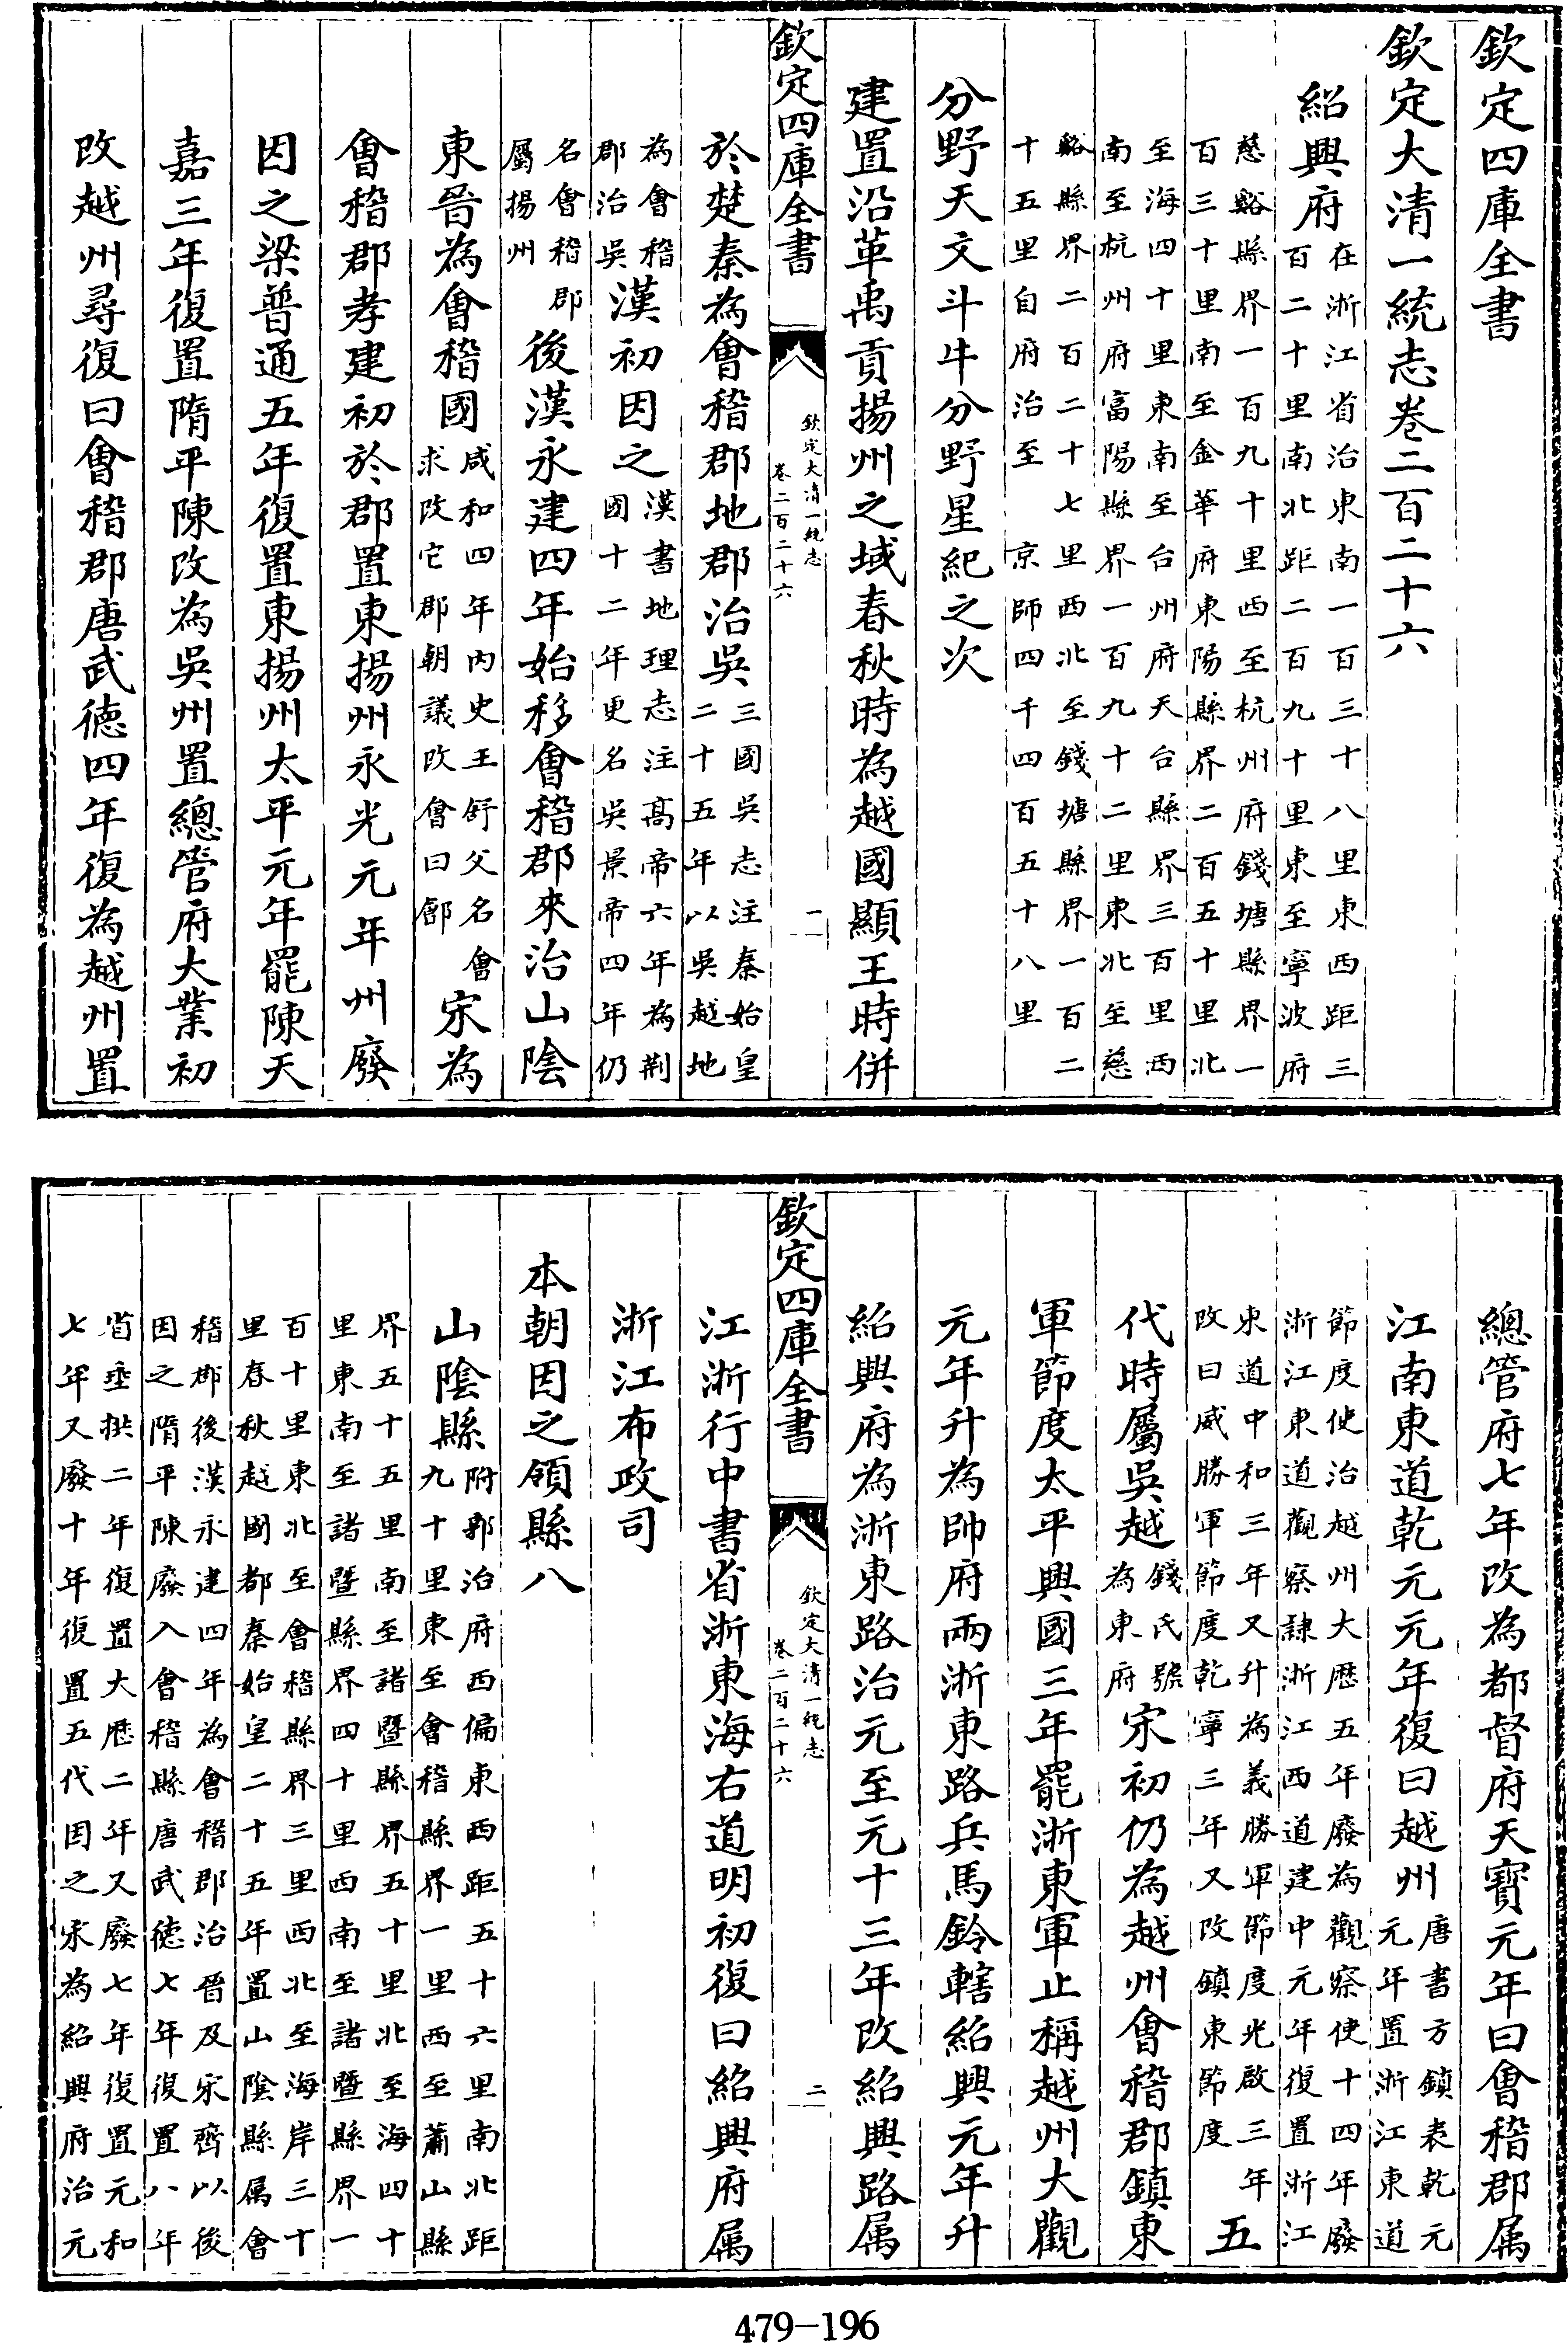 欽定四庫全書
欽定大清一統志卷二百二十六
紹興府
在浙江省治東南一百三十八里東西距三
百二十里南北距二百九十里東至寧波府
慈谿縣界一百九十里西至杭州府錢塘縣界一
百三十里南至金華府東陽縣界二百五十里北
至海四十里東南至台州府天台縣界三百里西
南至杭州府富陽縣界一百九十二里東北至慈
谿縣界二百二十七里西北至錢塘縣界一百二
十五里自府治至京師四千四百五十八里
分野天文斗牛分野星紀之次
建置沿革禹貢揚州之域春秋時為越國顯王時併
欽定四庫全書
欽定大清一統志
卷二百二十六
一
於楚秦為會稽郡地郡治吳
三國吳志注秦始皇
二十五年以吳越地
為會稽
郡治吳
漢初因之
漢書地理志注高帝六年為荆
國十二年更名吳景帝四年仍
名會稽郡
屬揚州
後漢永建四年始移會稽郡來治山陰
東晉為會稽國
咸和四年內史王舒父名會
求改它郡朝議改會曰鄶
宋為
會稽郡孝建初於郡置東揚州永光元年州廢
因之梁普通五年復置東揚州太平元年罷陳天
嘉三年復置隋平陳改為吳州置總管府大業初
改越州尋復曰會稽郡唐武徳四年復為越州置
總管府七年改為都督府天寳元年曰會稽郡属
江南東道乾元元年復曰越州
唐書方鎮表乾元
元年置浙江東道
節度使治越州大厯五年廢為觀察使十四年廢
浙江東道觀察隷浙江西道建中元年復置浙江
東道中和三年又升為義勝軍節度光啟三年
改曰威勝軍節度乾寧三年又改鎮東節度
五
代時屬吳越
錢氏號
為東府
宋初仍為越州會稽郡鎮東
軍節度太平興國三年罷浙東軍止稱越州大觀
元年升為帥府兩浙東路兵馬鈐轄紹興元年升
紹興府為浙東路治元至元十三年改紹興路属
欽定四庫全書
欽定大清一統志
卷二百二十六
二
江浙行中書省浙東海右道明初復曰紹興府属
浙江布政司
本朝因之領縣八
山陰縣
附郭治府西偏東西距五十六里南北距
九十里東至會稽縣界一里西至蕭山縣
界五十五里南至諸暨縣界五十里北至海四十
里東南至諸暨縣界四十里西南至諸暨縣界一
百十里東北至會稽縣界三里西北至海岸三十
里春秋越國都秦始皇二十五年置山陰縣属會
稽郡後漢永建四年為會稽郡治晉及宋齊以後
因之隋平陳廢入會稽縣唐武徳七年復置八年
省垂拱二年復置大厯二年又廢七年復置元和
七年又廢十年復置五代因之宋為紹興府治元
479-196